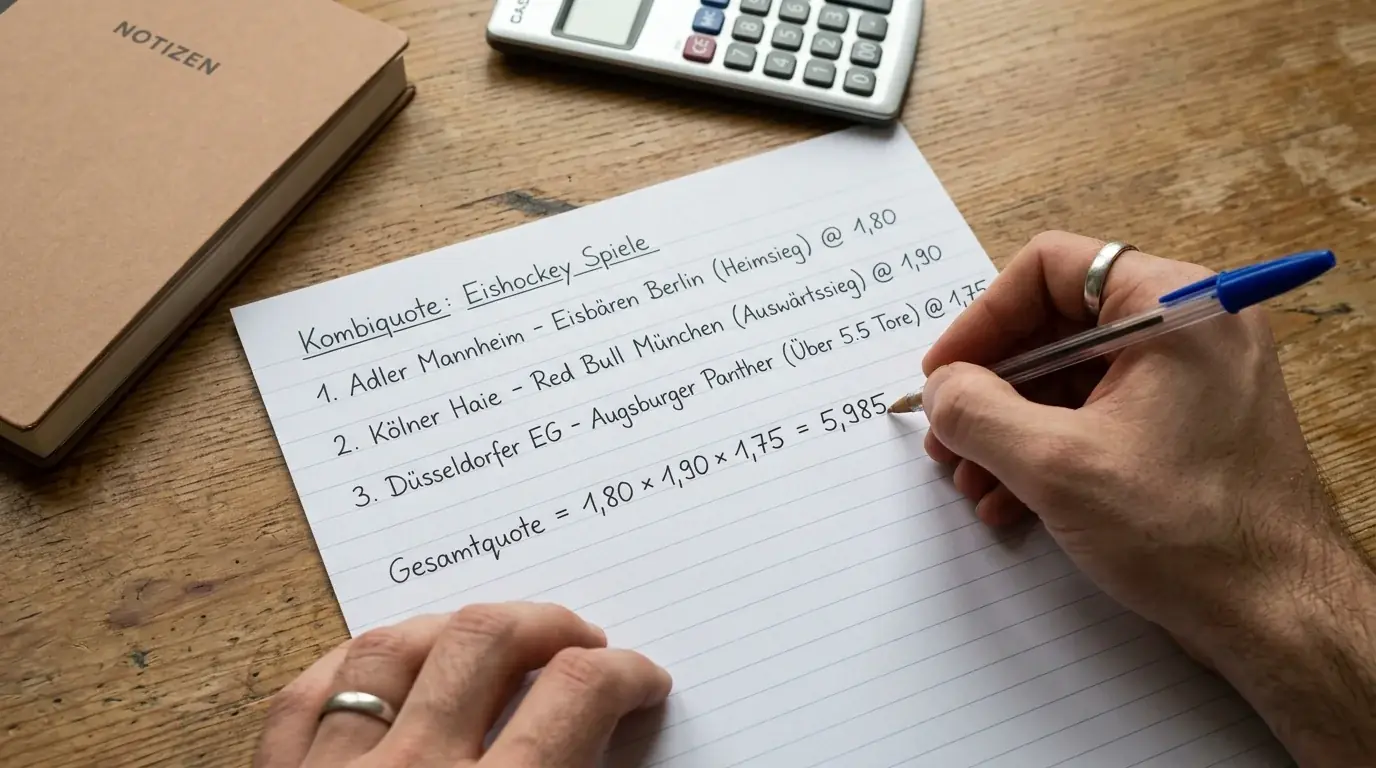 NOTIZEN
CE
MC
7
8
9
4
5
6
1
2
3
0
00
Kombiquote: Eishockey Spiele
1. Adler Mannheim - Eisbären Berlin (Heimsieg) @ 1,80
2. Kölner Haie - Red Bull München (Auswärtssieg) @ 1,90
3. Düsseldorfer EG - Augsburger Panther (Über 5.5 Tore) @ 1,75
Gesamtquote = 1,80 × 1,90 × 1,75 = 5,985